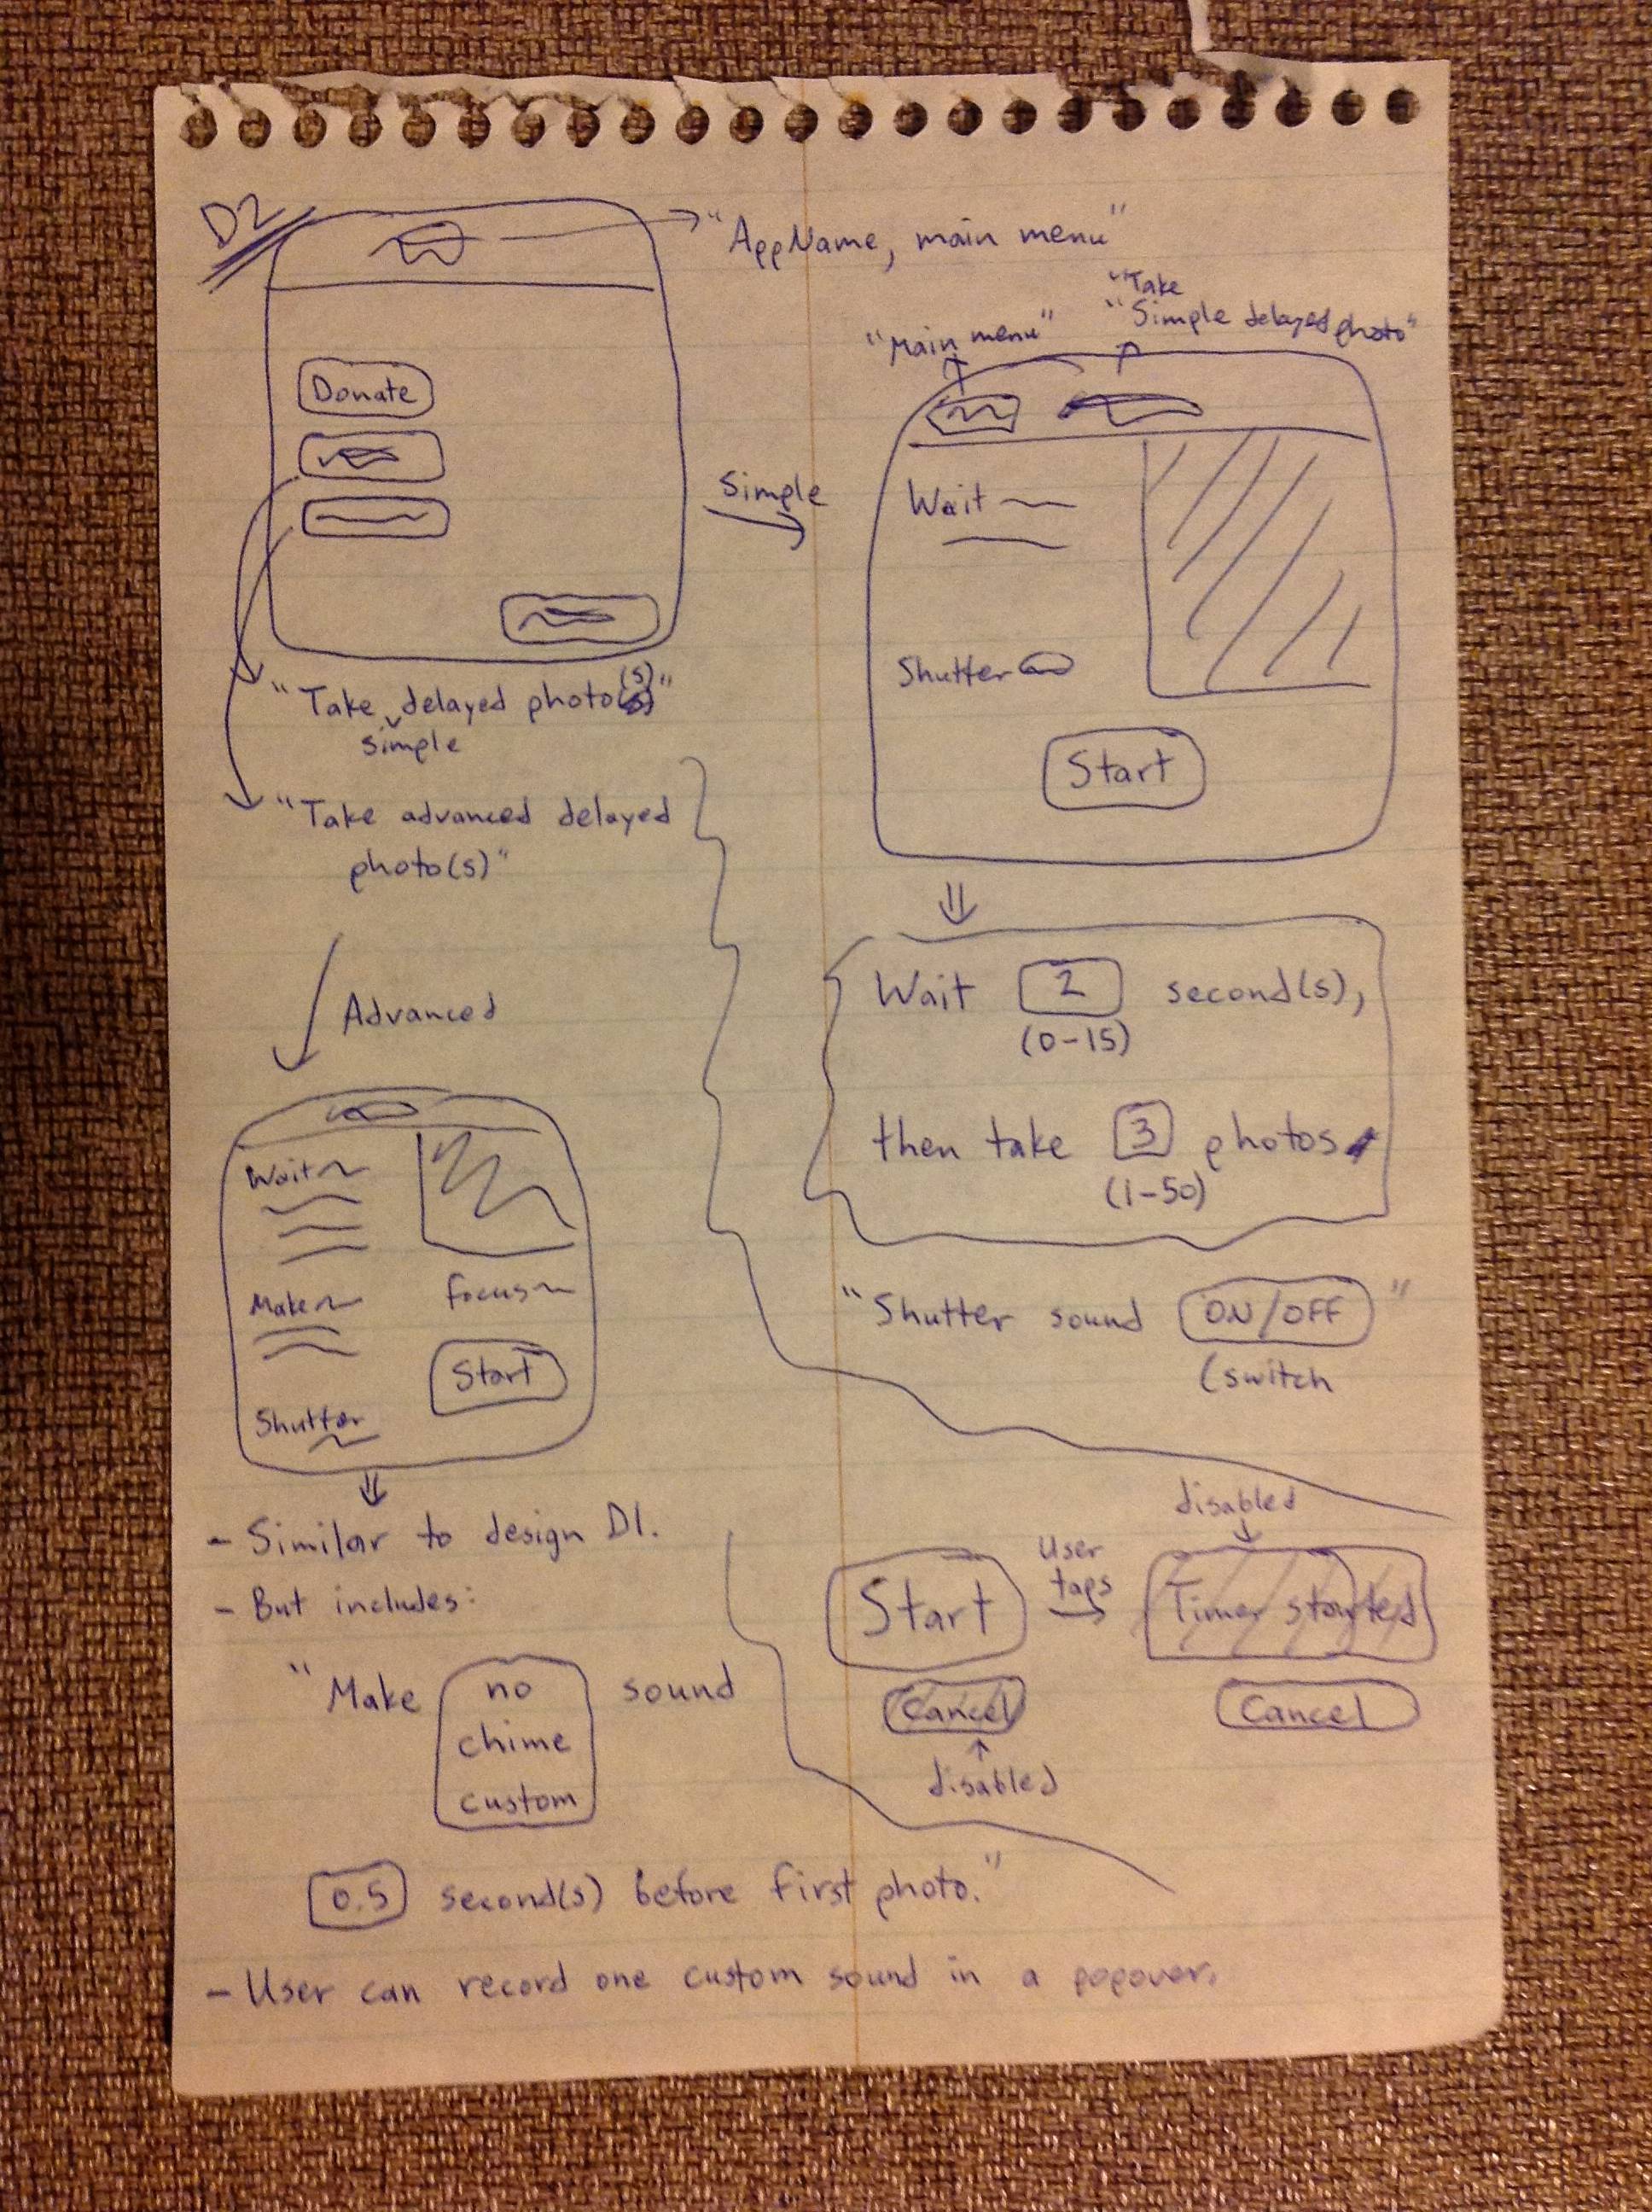 D2
"AppName, main menu"
Donate
"Take delayed photo(s)"
simple
"Take advanced delayed
photo(s)"
Simple
"Main menu"
"Take
"Simple delayed photo"
Wait
Shutter
Start
Wait 2 second(s),
(0-15)
then take 3 photos.
(1-50)
"Shutter sound ON/OFF"
(switch
Advanced
Wait
Make
Focus
Start
Shutter
- Similar to design D1.
- But includes:
"Make no sound
chime
custom
0.5 second(s) before first photo."
- User can record one custom sound in a popover.
Start
Cancel
disabled
User
taps
disabled
Timer started
Cancel